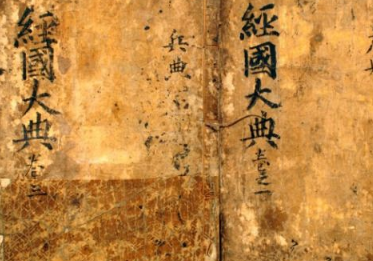 經國大典
卷之一
經國大典
卷三
兵典